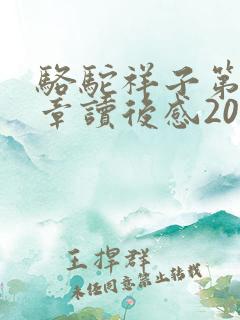 駱駝祥子第
章讀後感20
王捍群
未经同意禁止转载